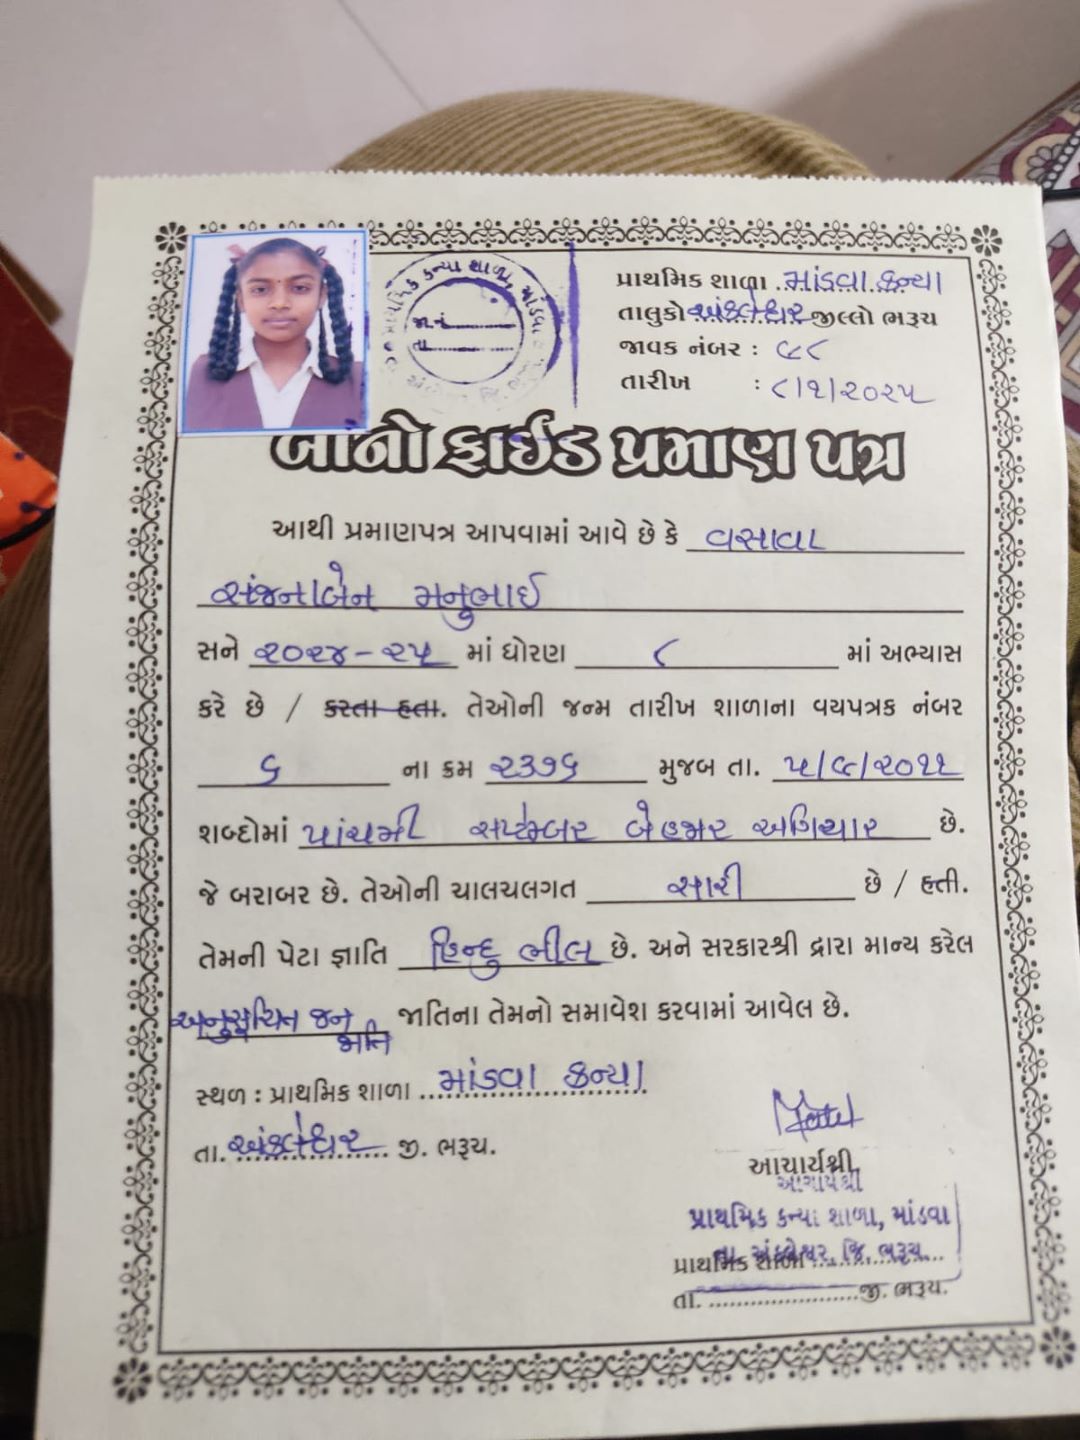 પ્રાથમિક કન્યા શાળા, માંડવા
જા.નં.
તા.
પ્રાથમિક શાળા માંડવા કન્યા
તાલુકો અંકલેશ્વર જીલ્લો ભરૂચ
જાવક નંબર : ૯૮
તારીખ : ૮/૧/૨૦૨૫
બોનો ફાઈડ પ્રમાણ પત્ર
આથી પ્રમાણપત્ર આપવામાં આવે છે કે વસાવા
સંજનાબેન મનુભાઈ
સને ૨૦૨૪-૨૫ માં ધોરણ ૮ માં અભ્યાસ
કરે છે / કરતા હતા. તેઓની જન્મ તારીખ શાળાના વયપત્રક નંબર
૬ ના ક્રમ ૨૩૭૬ મુજબ તા. ૫/૯/૨૦૧૧
શબ્દોમાં પાંચમી સપ્ટેમ્બર બે હજાર અગિયાર છે.
જે બરાબર છે. તેઓની ચાલચલગત સારી છે / હતી.
તેમની પેટા જ્ઞાતિ હિન્દુ ભીલ છે. અને સરકારશ્રી દ્રારા માન્ય કરેલ
અનુસૂચિત જન જાતિ જાતિના તેમનો સમાવેશ કરવામાં આવેલ છે.
સ્થળ : પ્રાથમિક શાળા માંડવા કન્યા
તા. અંકલેશ્વર જી. ભરૂચ.
આચાર્યશ્રી,
આચાર્યશ્રી
પ્રાથમિક કન્યા શાળા, માંડવા
તા. અંકલેશ્વર, જિ. ભરૂચ.
પ્રાથમિક શાળા
તા. જી. ભરૂચ.